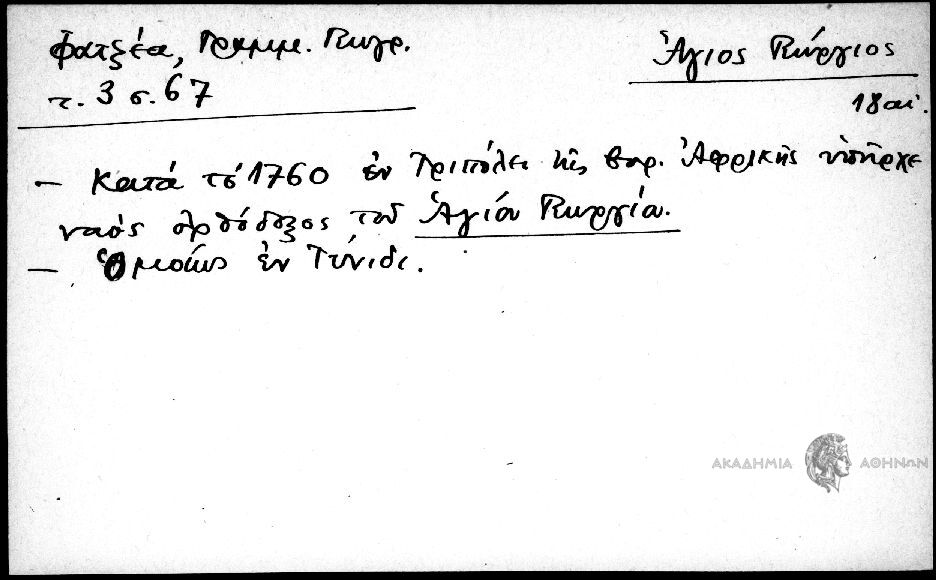 Φατζέα, Γραμμ. Γεωγρ.
τ. 3 σ. 67
Ἅγιος Γεώργιος
18 αἰ.
— Κατά τό 1760 ἐν Τριπόλει τῆς βορ. Ἀφρικῆς ὑπῆρχε
ναός ὀρθόδοξος τοῦ Ἁγίου Γεωργίου.
— Ὁμοίως ἐν Τύνιδι.
ΑΚΑΔΗΜΙΑ ΑΘΗΝΩΝ